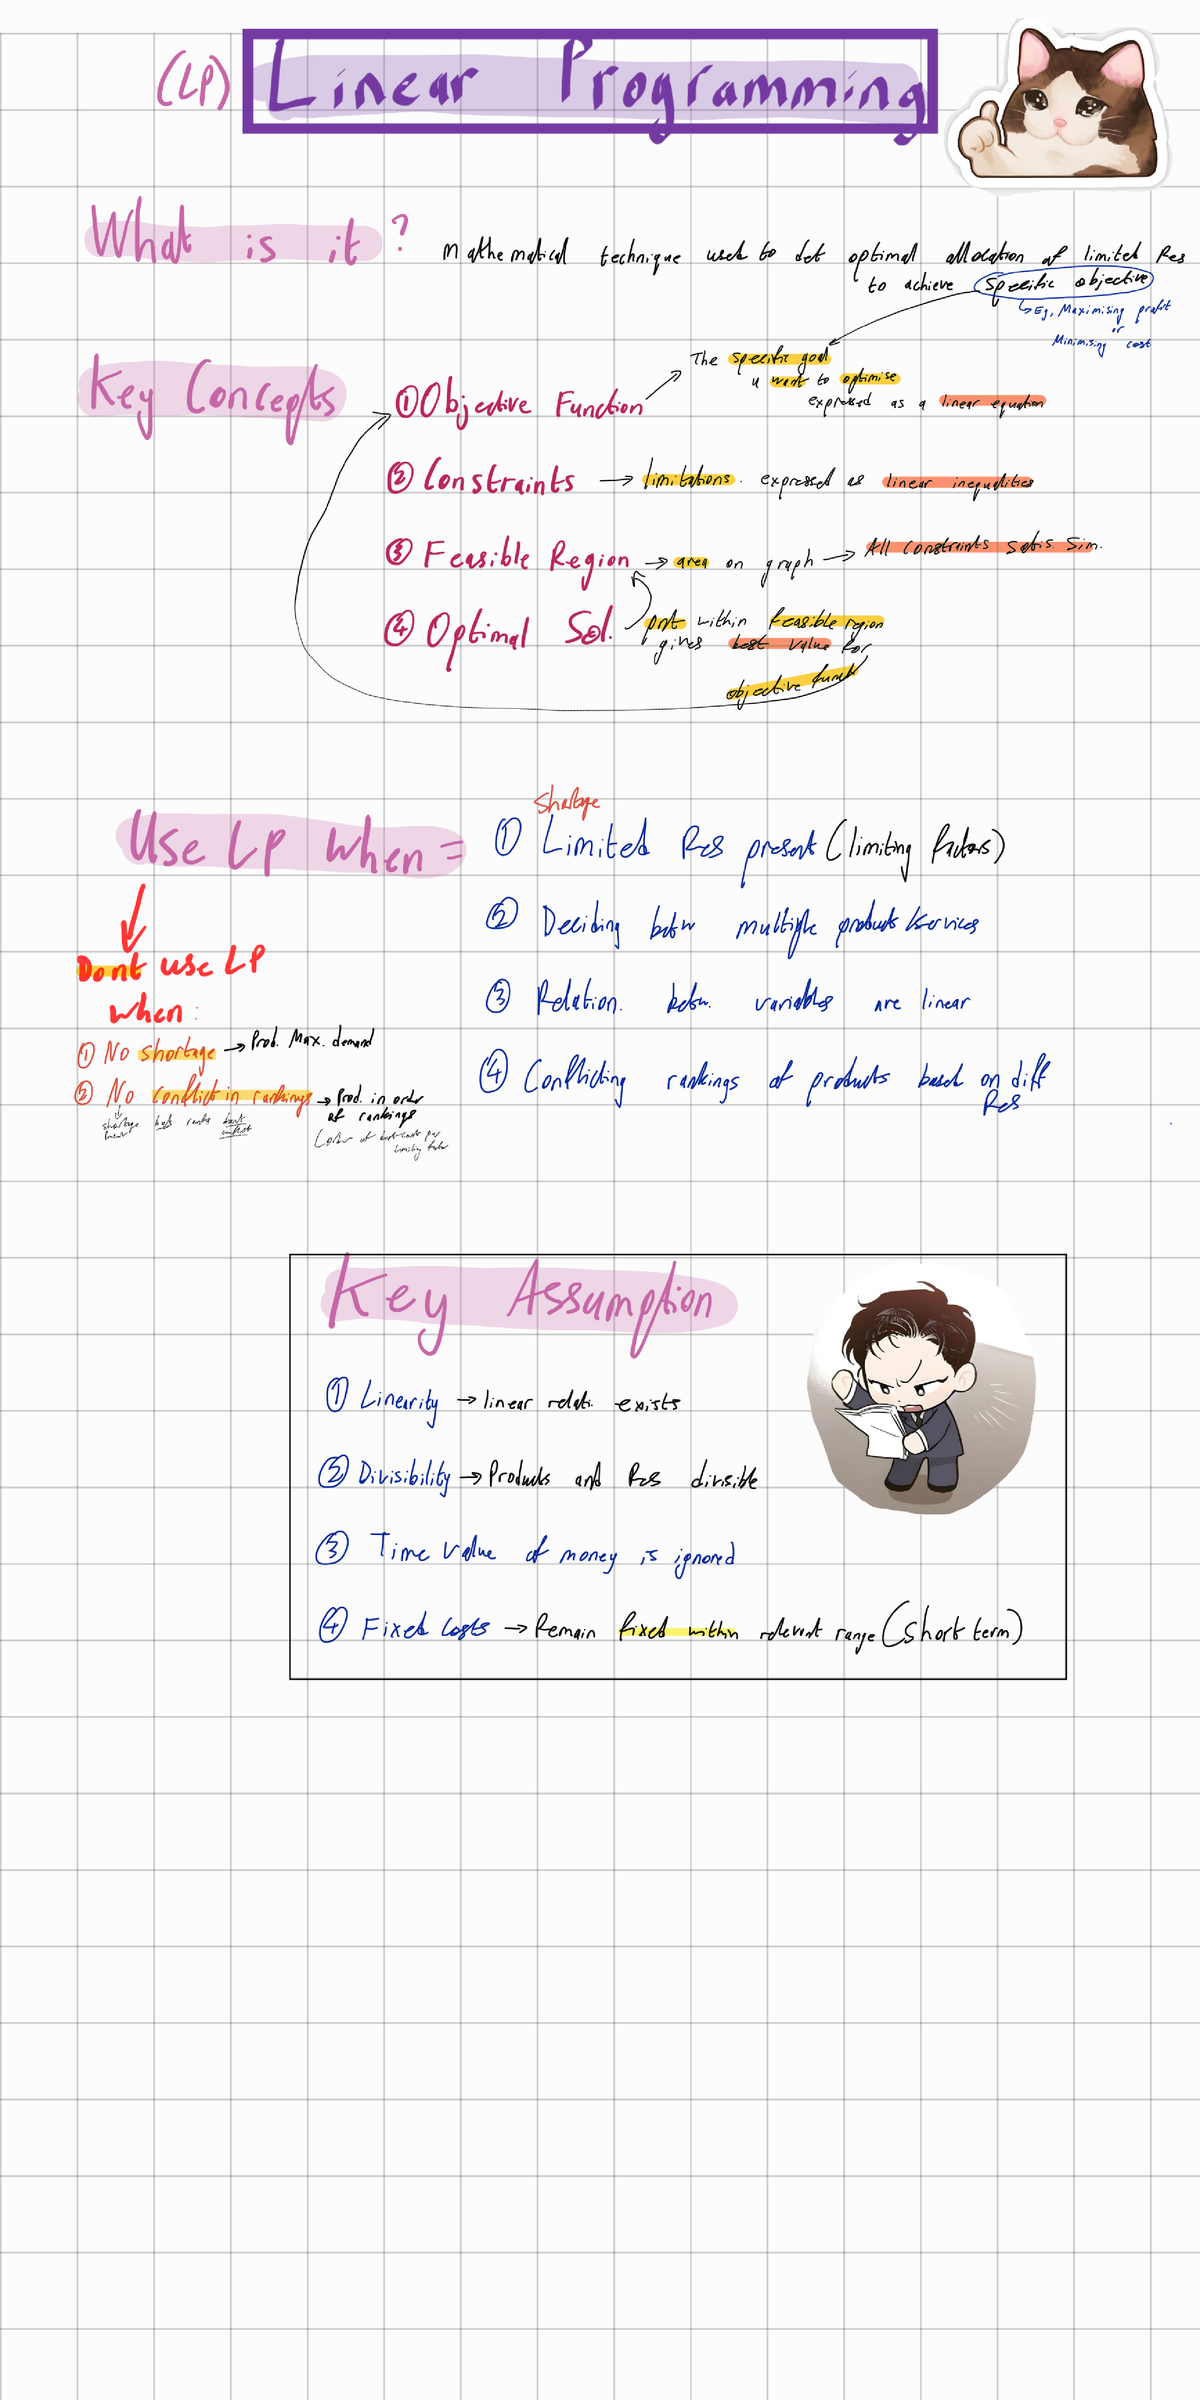 (LP) Linear Programming
What is it?
Mathematical technique used to det optimal allocation of limited Res
to achieve specific objective
↳ Eg, Maximising profit
or
Minimising cost
Key Concepts
① Objective Function
The specific goal
u want to optimise
expressed as a linear equation
② Constraints → limitations. expressed as linear inequalities
③ Feasible Region → area on graph → All constraints satis. sim.
④ Optimal Sol.
pnt within feasible region
gives best value for
objective funct
Use LP when =
Shortage
① Limited Res present (limiting factors)
② Deciding betw multiple products/services
③ Relation. betw. variables are linear
④ Conflicting rankings of products based on diff
Res
Dont use LP
when:
① No shortage → Prod. Max. demand
② No conflict in rankings → Prod. in order
of rankings
shortage
ranks
limiting factor
Key Assumption
① Linearity → linear relati. exists
② Divisibility → Products and Res divisible
③ Time value of money is ignored
④ Fixed Costs → Remain fixed within relevant range (short term)